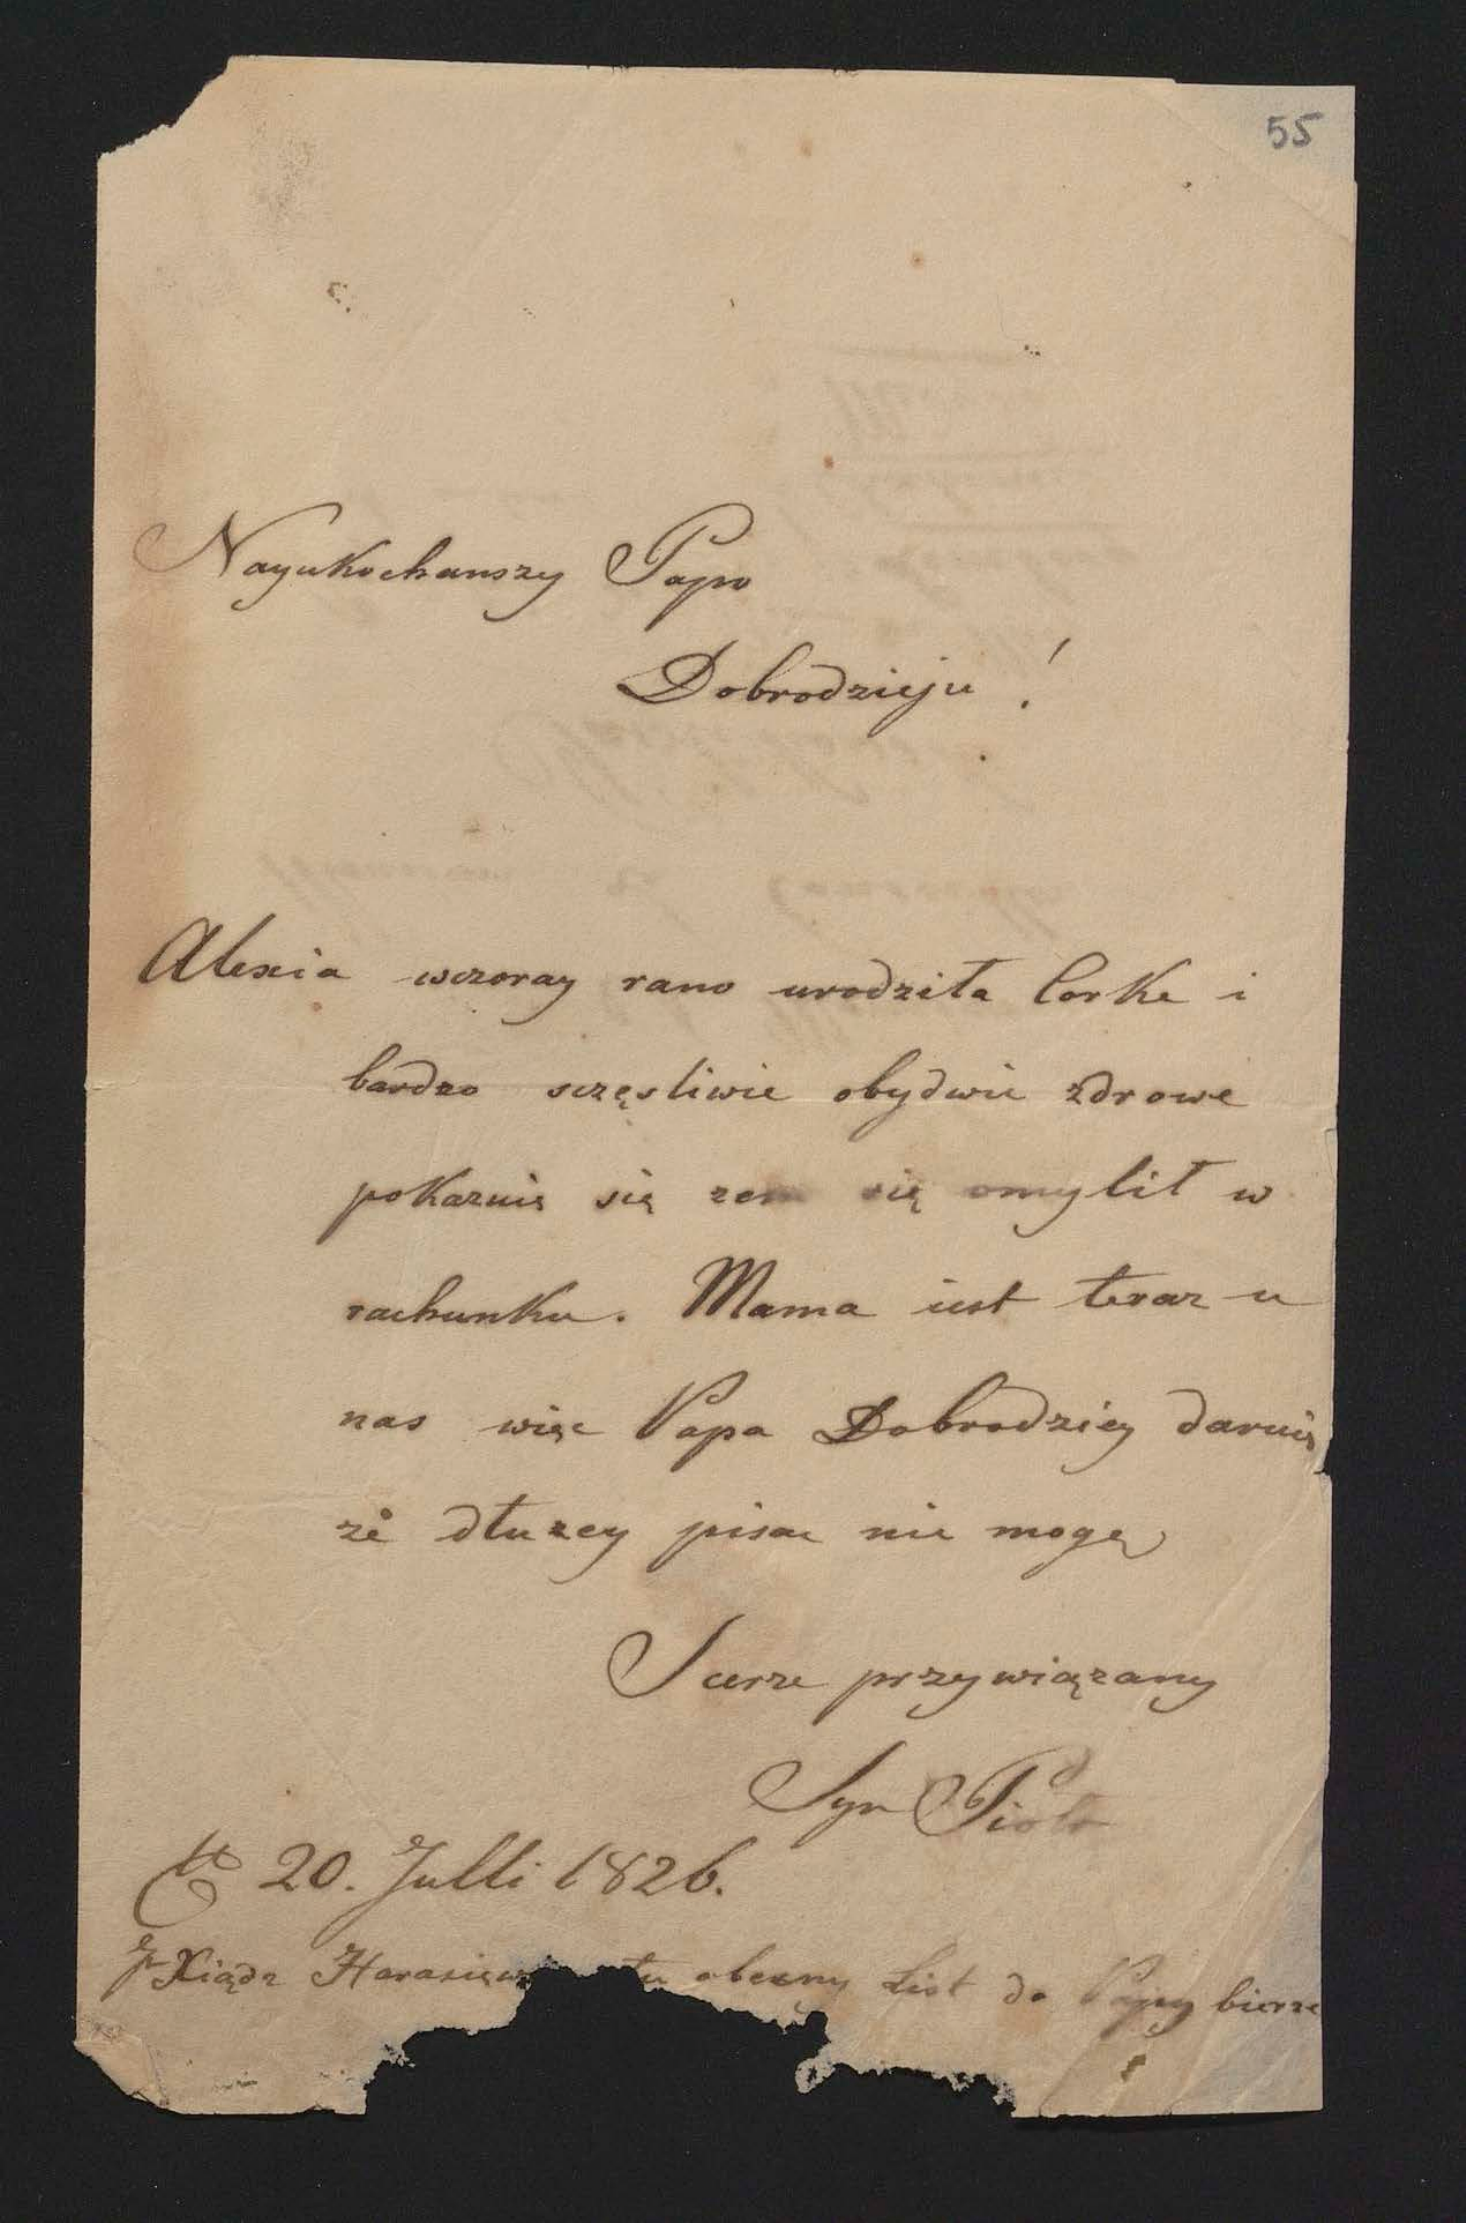 55
Nayukochanszy Papo
Dobrodzieju !
Alexia wczoray rano urodziła Corke i
bardzo sczęsliwie obydwie zdrowe
pokazuię się zem się omylił w
rachunku. Mama iest teraz u
nas więc Papa Dobrodziey daruię
że dłuzey pisac nie mogę
Scerze przywiązany
Syn Piotr
20. Julli 1826.
Xiądz tu obecny List do Papy bierze